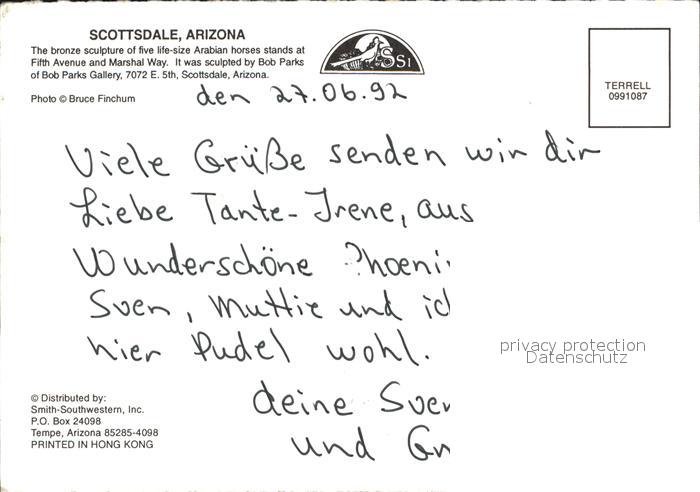 SCOTTSDALE, ARIZONA
The bronze sculpture of five life-size Arabian horses stands at
Fifth Avenue and Marshal Way. It was sculpted by Bob Parks
of Bob Parks Gallery, 7072 E. 5th, Scottsdale, Arizona.
Photo © Bruce Finchum
SSI
TERRELL
0991087
den 27.06.92
Viele Grüße senden wir dir
Liebe Tante-Irene, aus
Wunderschöne Phoeni
Sven, Muttie und ic
hier Pudel wohl.
deine Sven
und
privacy protection
Datenschutz
© Distributed by:
Smith-Southwestern, Inc.
P.O. Box 24098
Tempe, Arizona 85285-4098
PRINTED IN HONG KONG